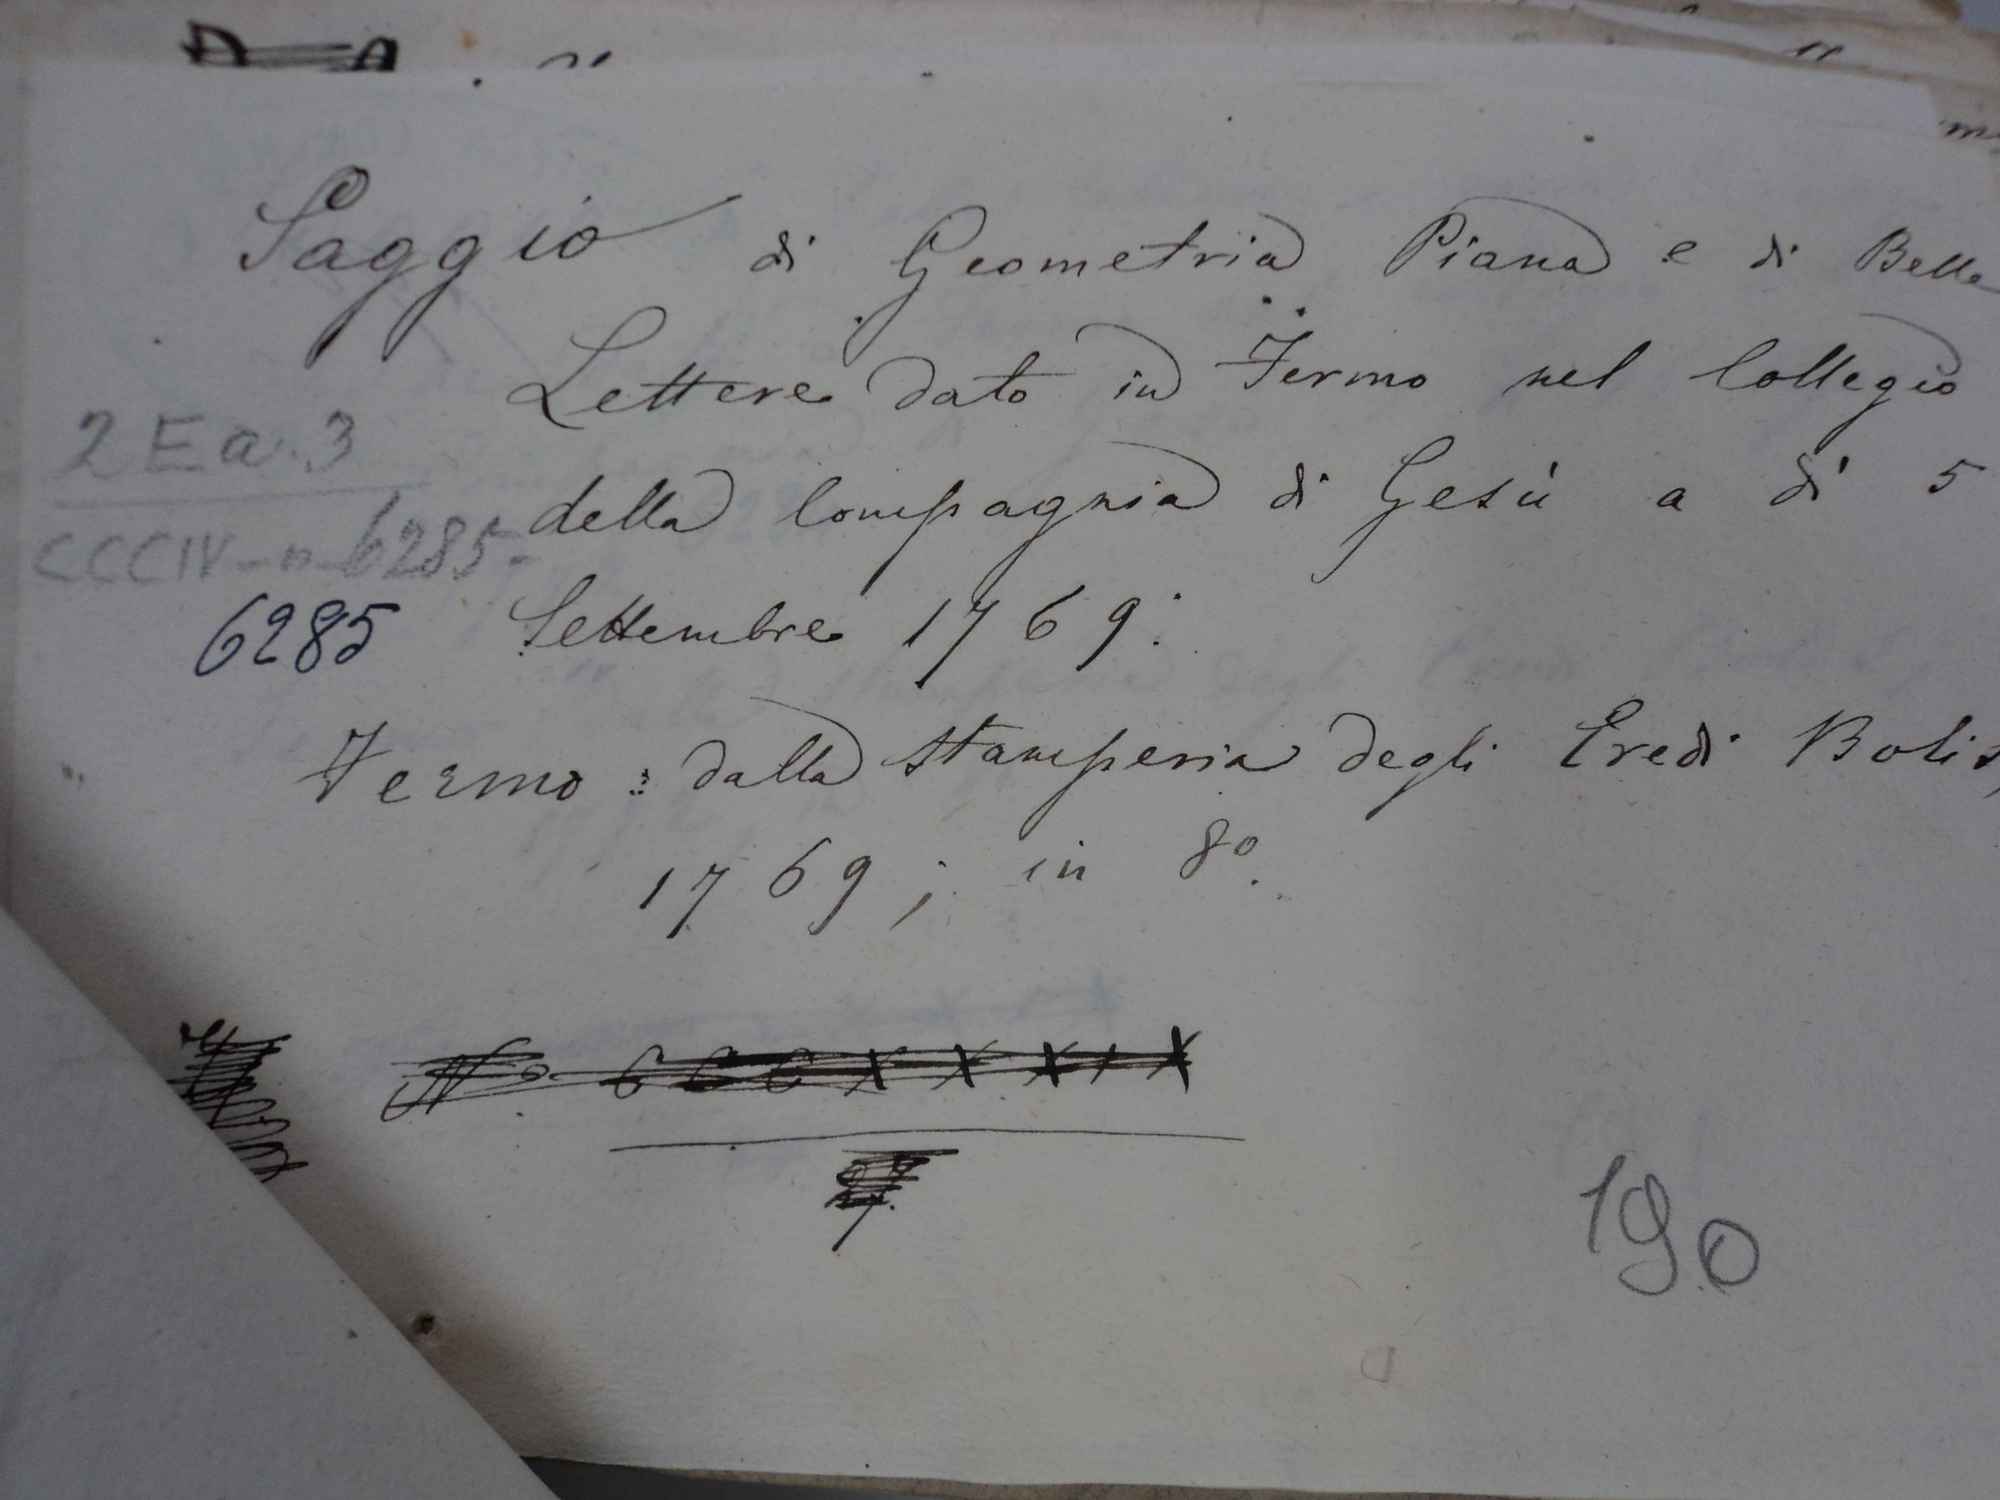 Saggio di Geometria Piana e di Belle
Lettere dato in Fermo nel Collegio
2 E a. 3
della Compagnia di Gesù a di 5
CCCIV - n 6285.
6285
Settembre 1769.
Fermo: dalla stamperia degli Eredi Bolis,
1769; in 8º.
No. CCCXXXIX
190